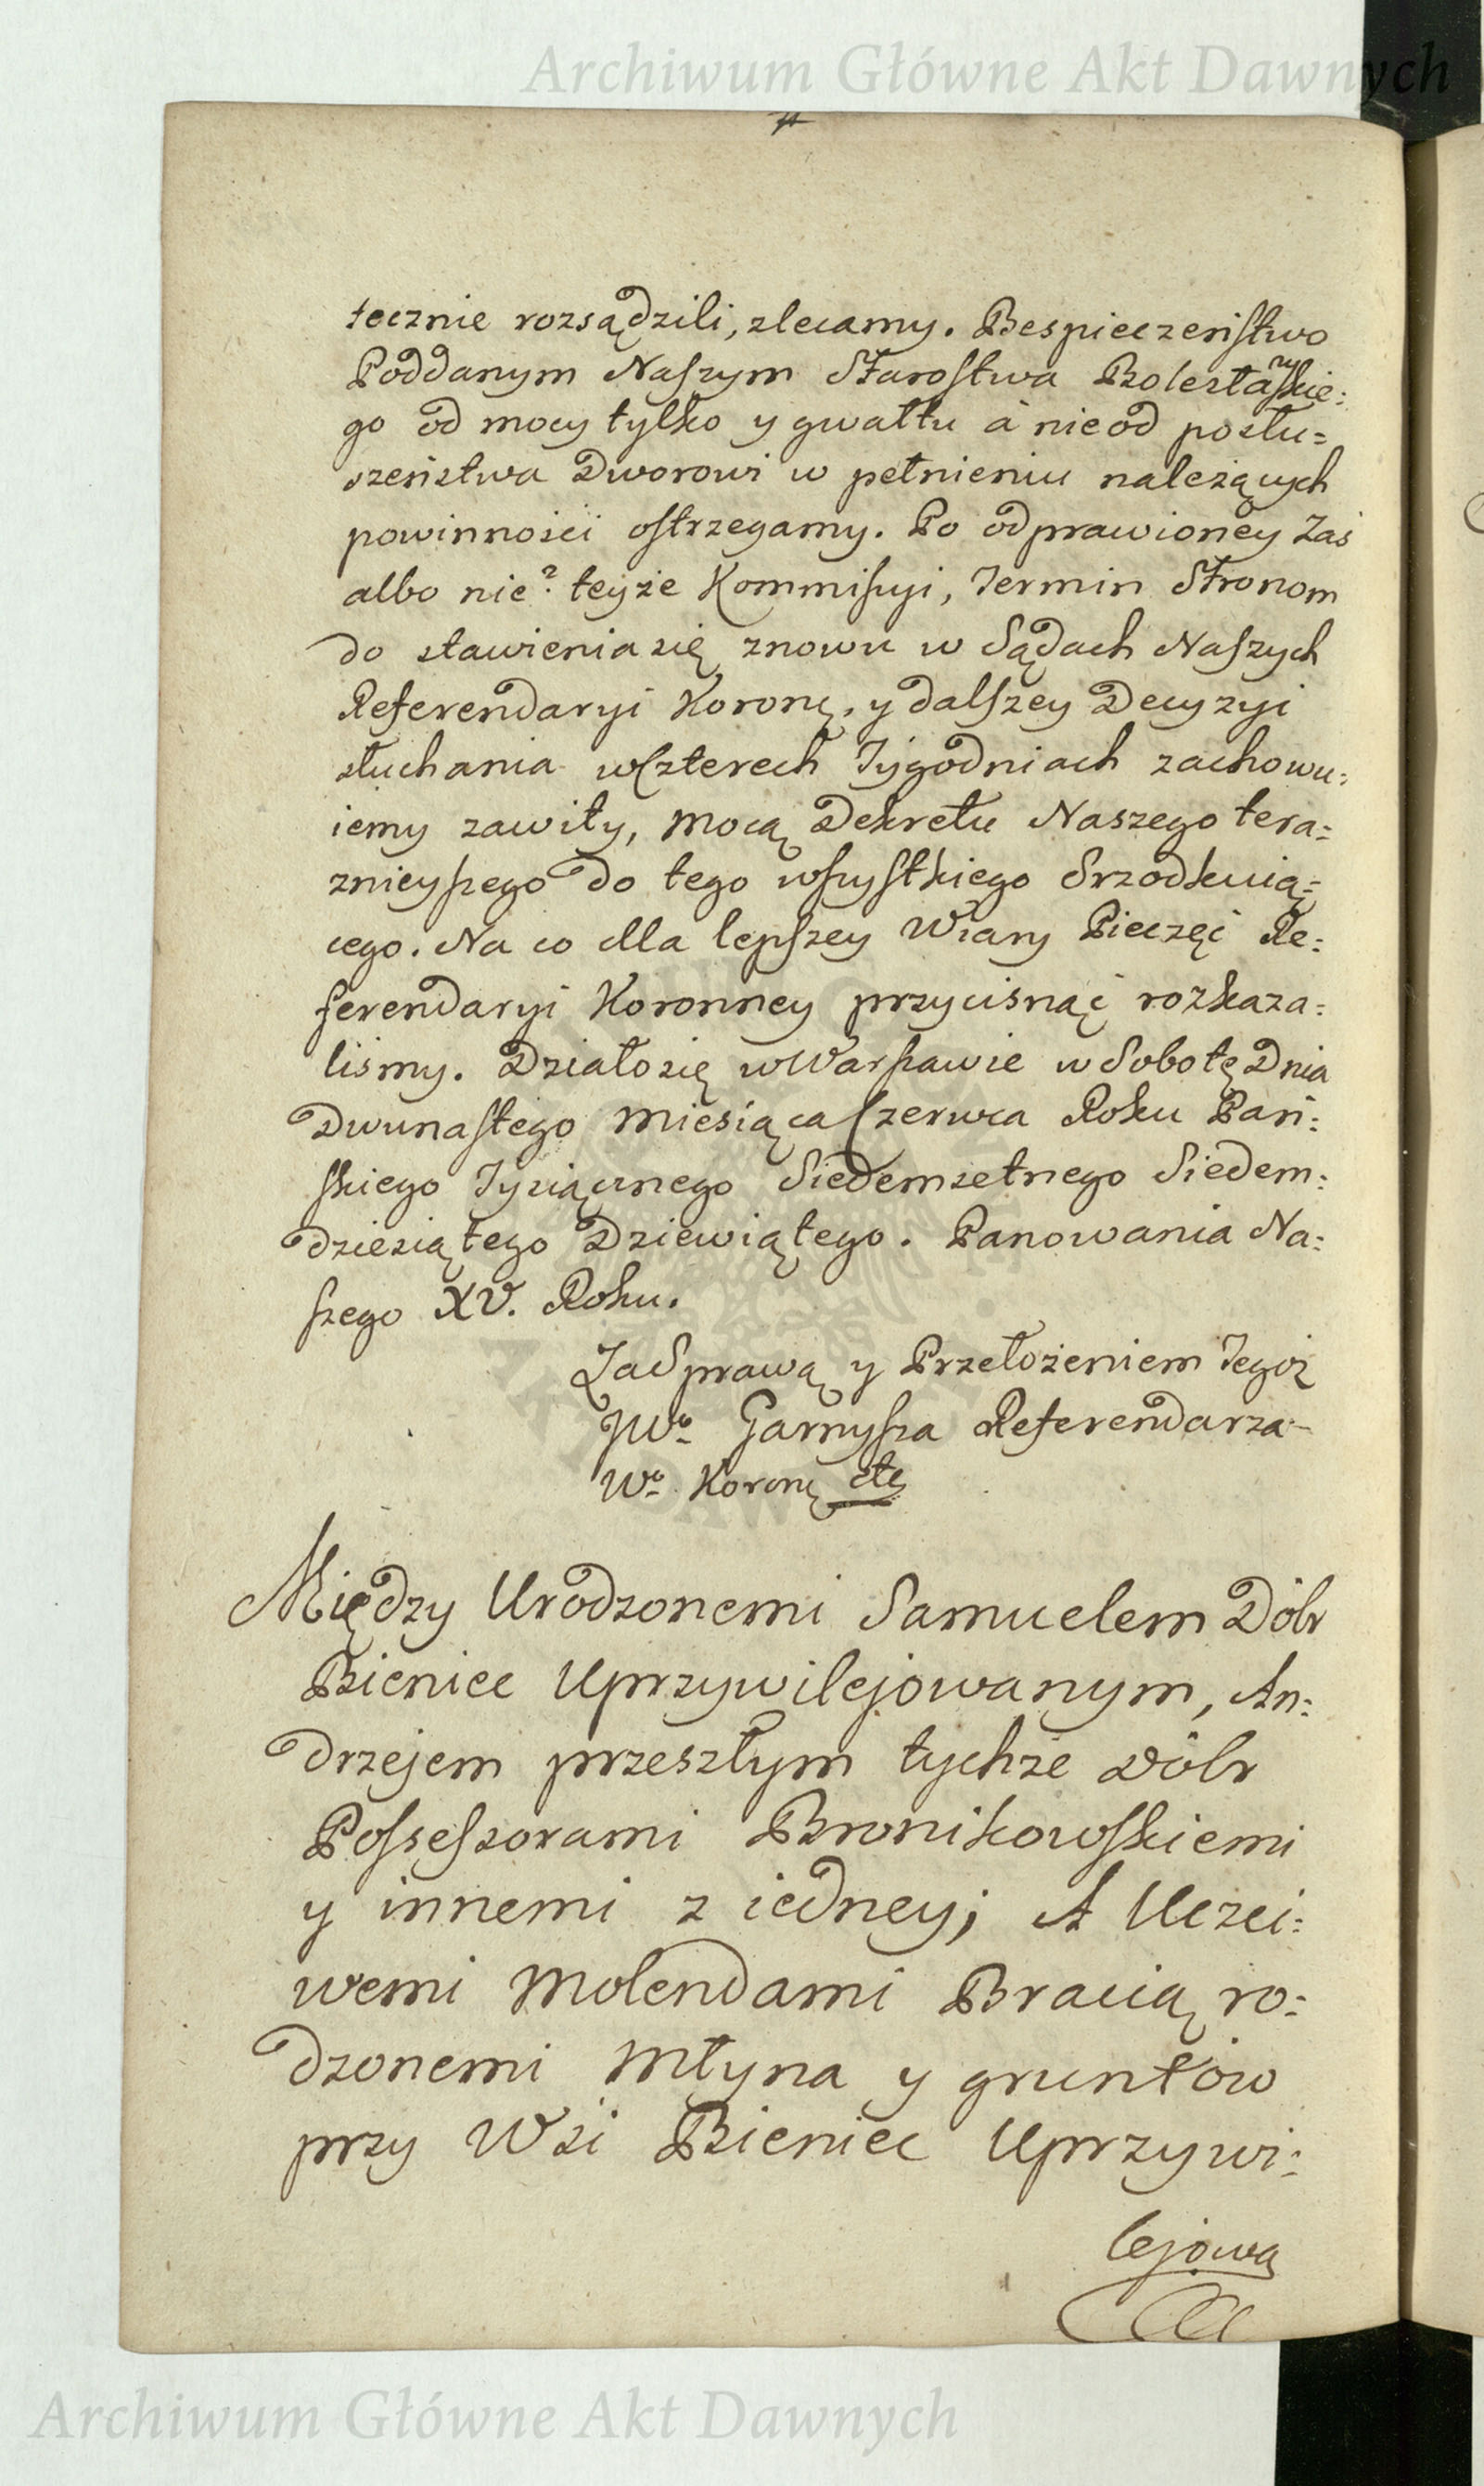 Archiwum Główne Akt Dawnych
tecznie rozsądzili, zlecamy. Bespieczeństwo
Poddanym Naszym Starostwa Bolesłańskie:
go od mocy tylko y gwałtu á nie od posłu=
szeństwa Dworowi w pełnieniu należących
powinności ostrzegamy. Po odprawioney Zaś
albo nie? teyże Kommissyi, Termin Stronom
do stawienia się znowu w Sądach Naszych
Referendaryi Koronę, y dalszey Decyzyi
słuchania w Czterech Tygodniach zachowu:
iemy zawity, mocą Dekretu Naszego tera=
znieyszego do tego wszystkiego Srzodkuią=
cego. Na co dla lepszey Wiary Pieczęć Re:
ferendaryi Koronney przycisnąć rozkaza=
liśmy. Działo się w Warszawie w Sobotę Dnia
Dwunastego Miesiąca Czerwca Roku Pań:
skiego Tysiącznego Siedemsetnego Siedem:
dziesiątego Dziewiątego. Panowania Na:
szego XV. Roku.
Za Sprawą y Przełożeniem Tegoż
JWo Garnysza Referendarza
Wo Koronę etc
Między Urodzonemi Samuelem Dóbr
Bieniec Uprzywilejowanym, An:
drzejem przeszłym tychże Dóbr
Possessorami Bronikowskiemi
y innemi z iedney; A Uczci:
wemi Molendami Bracią ro:
dzonemi Młyna y gruntów
przy Wsi Bieniec Uprzywi:
lejowa
Archiwum Główne Akt Dawnych